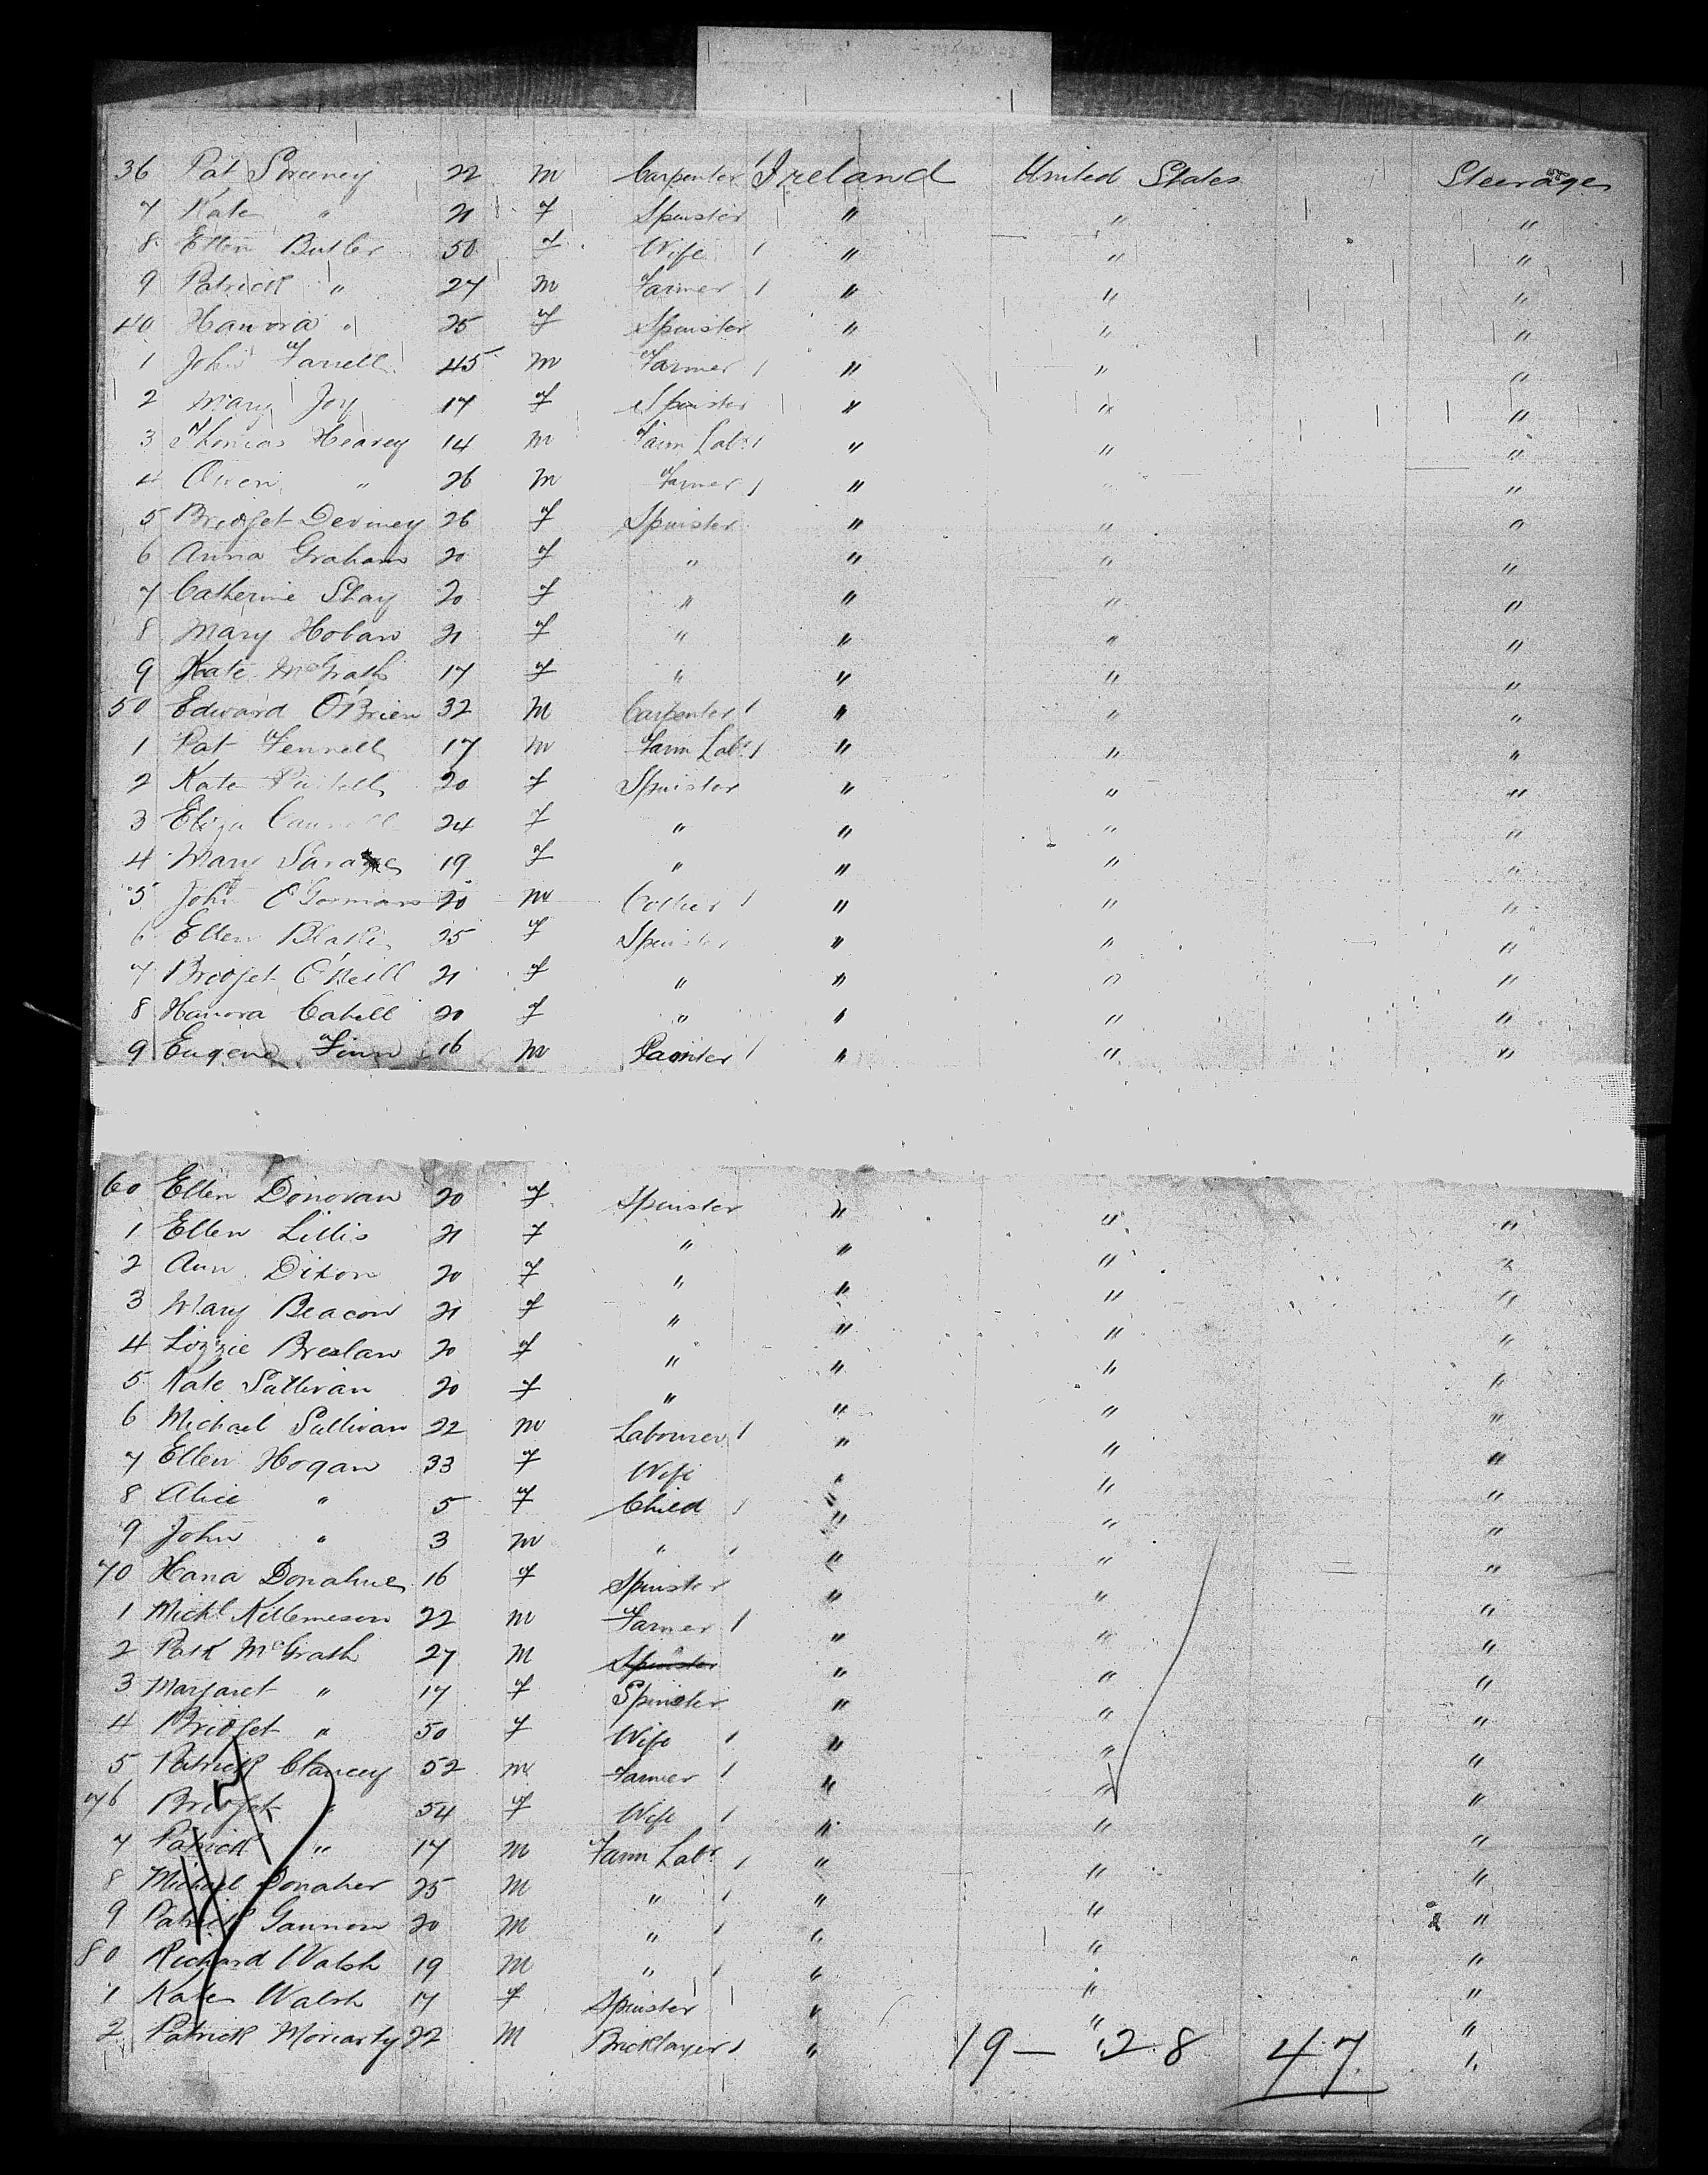 36 Pat Sweeney 22 m Carpenter / Ireland United States Steerage
7 Kate " 21 f Spinster " " "
8 Ellen Butler 50 f Wife / " " "
9 Patrick " 27 m Farmer / " " "
40 Hanora " 25 f Spinster " " "
1 John Farrell 45 m Farmer / " " "
2 Mary Joy 17 f Spinster " " "
3 Thomas Heavey 14 m Farm Labr / " " "
4 Owen " 26 m Farmer / " " "
5 Bridget Deviney 26 f Spinster " " "
6 Anna Graham 20 f " " " "
7 Catherine Shay 20 f " " " "
8 Mary Hoban 21 f " " " "
9 Kate McGrath 17 f " " " "
50 Edward O'Brien 32 M Carpenter / " " "
1 Pat Fennell 17 m Farm Labr / " " "
2 Kate 20 f Spinster " " "
3 Eliza 24 f " " " "
4 Mary 19 f " " " "
5 John O'Gorman 20 m Collier / " " "
6 Ellen Blake 25 f Spinster " " "
7 Bridget O'Neill 21 f " " " "
8 Hanora Cahill 20 f " " " "
9 Eugene Finn 16 m Painter / " " "
60 Ellen Donovan 20 f Spinster " " "
1 Ellen Lillis 21 f " " " "
2 Ann Dixon 20 f " " " "
3 Mary Beacon 21 f " " " "
4 Lizzie Breslan 20 f " " " "
5 Kate Sullivan 20 f " " " "
6 Michael Sullivan 22 m Labourer / " " "
7 Ellen Hogan 33 f Wife " " "
8 Alice " 5 f Child / " " "
9 John " 3 m " / " " "
70 Hana Donahue 16 f Spinster " " "
1 Michl Killemeson 22 m Farmer / " " "
2 Patk McGrath 27 M Spinster " " "
3 Margaret " 17 f Spinster " " "
4 Bridget " 50 f Wife / " " "
5 Patrick Clancey 52 m Farmer / " " "
76 Bridget " 54 f Wife / " " "
7 Patrick " 17 m Farm Labr / " " "
8 Michael Donaher 25 M " / " " "
9 Patrick Gannon 20 M " / " " "
80 Richard Walsh 19 M " / " " "
1 Kate Walsh 17 f Spinster " " "
2 Patrick Moriarty 22 M Bricklayer / " " "
19 — 28 47